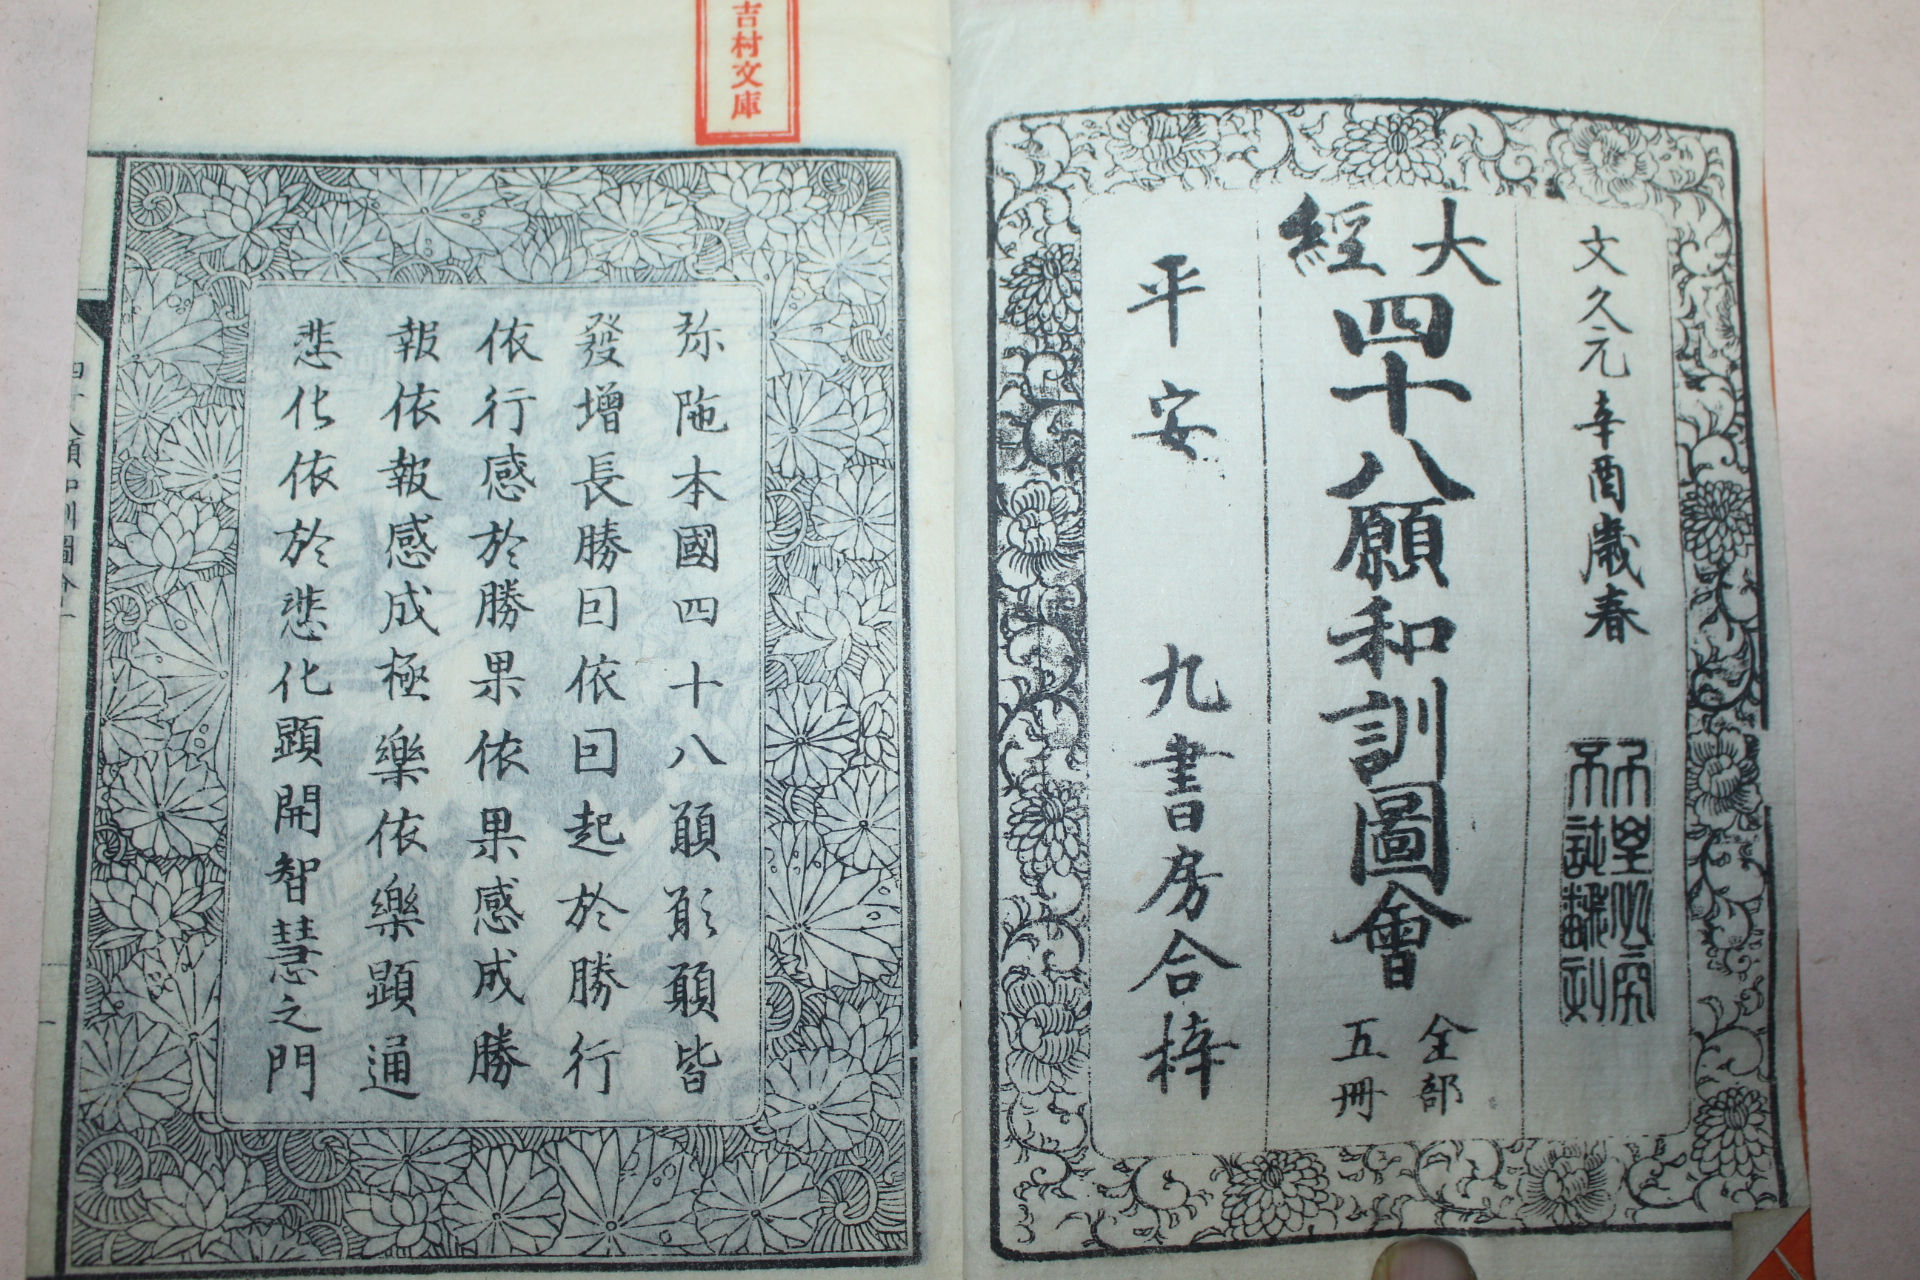 文久元辛酉歳春
千里必究
不許翻刻
大經四十八願和訓圖會 全部五冊
平安 九書房合梓
吉村文庫
弥陁本國四十八願願願皆
發增長勝囙依囙起於勝行
依行感於勝果依果感成勝
報依報感成極樂依樂顯通
悲化依於悲化顯開智慧之門
四十八願和訓圖會一